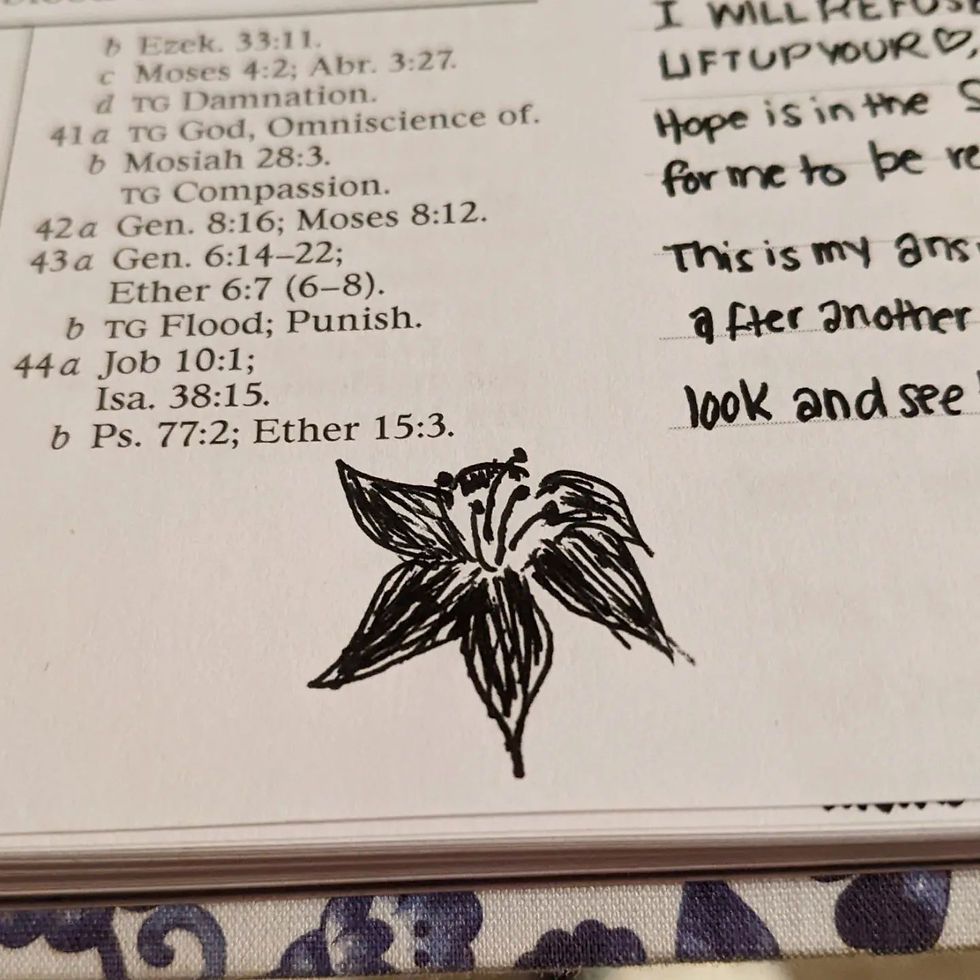 b Ezek. 33:11.
c Moses 4:2; Abr. 3:27.
d TG Damnation.
41 a TG God, Omniscience of.
b Mosiah 28:3.
TG Compassion.
42 a Gen. 8:16; Moses 8:12.
43 a Gen. 6:14–22;
Ether 6:7 (6–8).
b TG Flood; Punish.
44 a Job 10:1;
Isa. 38:15.
b Ps. 77:2; Ether 15:3.
I WILL REFUSE
LIFT UP YOUR ♡,
Hope is in the
for me to be
This is my
after another
look and see